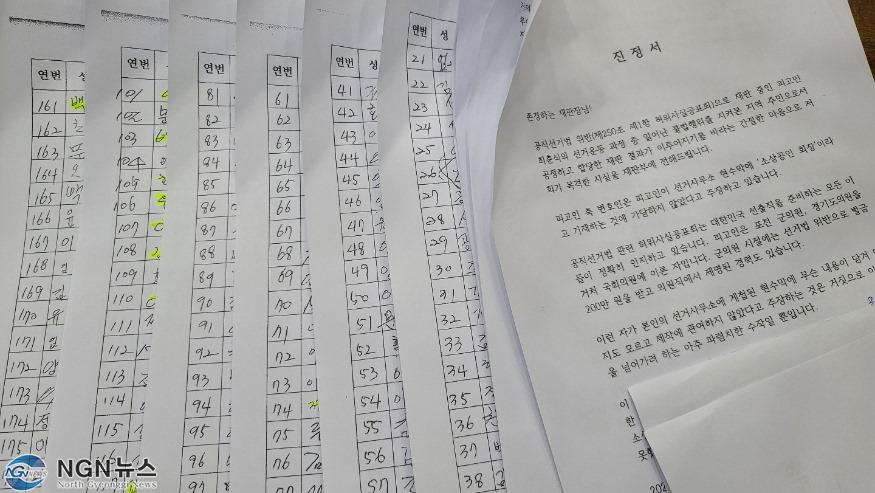 연번
161 백
162
163
164
165 백
166 윤
167 이
168 김
169 김
170 유
171 김
172 양
173
174 정
175 이
연번
101
102
103
104
105
106
107
108
109
110
111
112
113
114
115
116
연번
81
82
83
84
85
86
87
88
89
90
91
92
93
94
95
96
97
연번
61
62
63
64
65
66
67
68
69
70
71
72
73
74
75
76
77
연번 성
41
42
43
44
45
46
47
48
49
50
51
52
53
54
55
56
57
연번 성
21
22
23
24
25
26
27
28
29
30
31
32
33
34
35
36
37
38
진 정 서
존경하는 재판장님!
공직선거법 위반(제250조 제1항 허위사실공표죄)으로 재판 중인 피고인
최춘식의 선거운동 과정 중 일어난 불법행위를 지켜본 지역 주민으로서
공정하고 합당한 재판 결과가 이루어지기를 바라는 간절한 마음으로 저
희가 목격한 사실을 재판부에 전해드립니다.
피고인 측 변호인은 피고인이 선거사무소 현수막에 '소상공인 회장'이라
고 기재하는 것에 가담하지 않았다고 주장하고 있습니다.
공직선거법 관련 허위사실공표는 대한민국 선출직을 준비하는 모든 이
들이 정확히 인지하고 있습니다. 피고인은 포천 군의원, 경기도의원을
거쳐 국회의원에 이른 자입니다. 군의원 시절에는 선거법 위반으로 벌금
200만 원을 받고 의원직에서 제명된 경력도 있습니다.
이런 자가 본인의 선거사무소에 게첩된 현수막에 무슨 내용이 담겨
지도 모르고 제작에 관여하지 않았다고 주장하는 것은 거짓으로
을 넘어가려 하는 아주 파렴치한 수작일 뿐입니다.
이
한
소
못
202
NGN뉴스
North Gyeonggi News